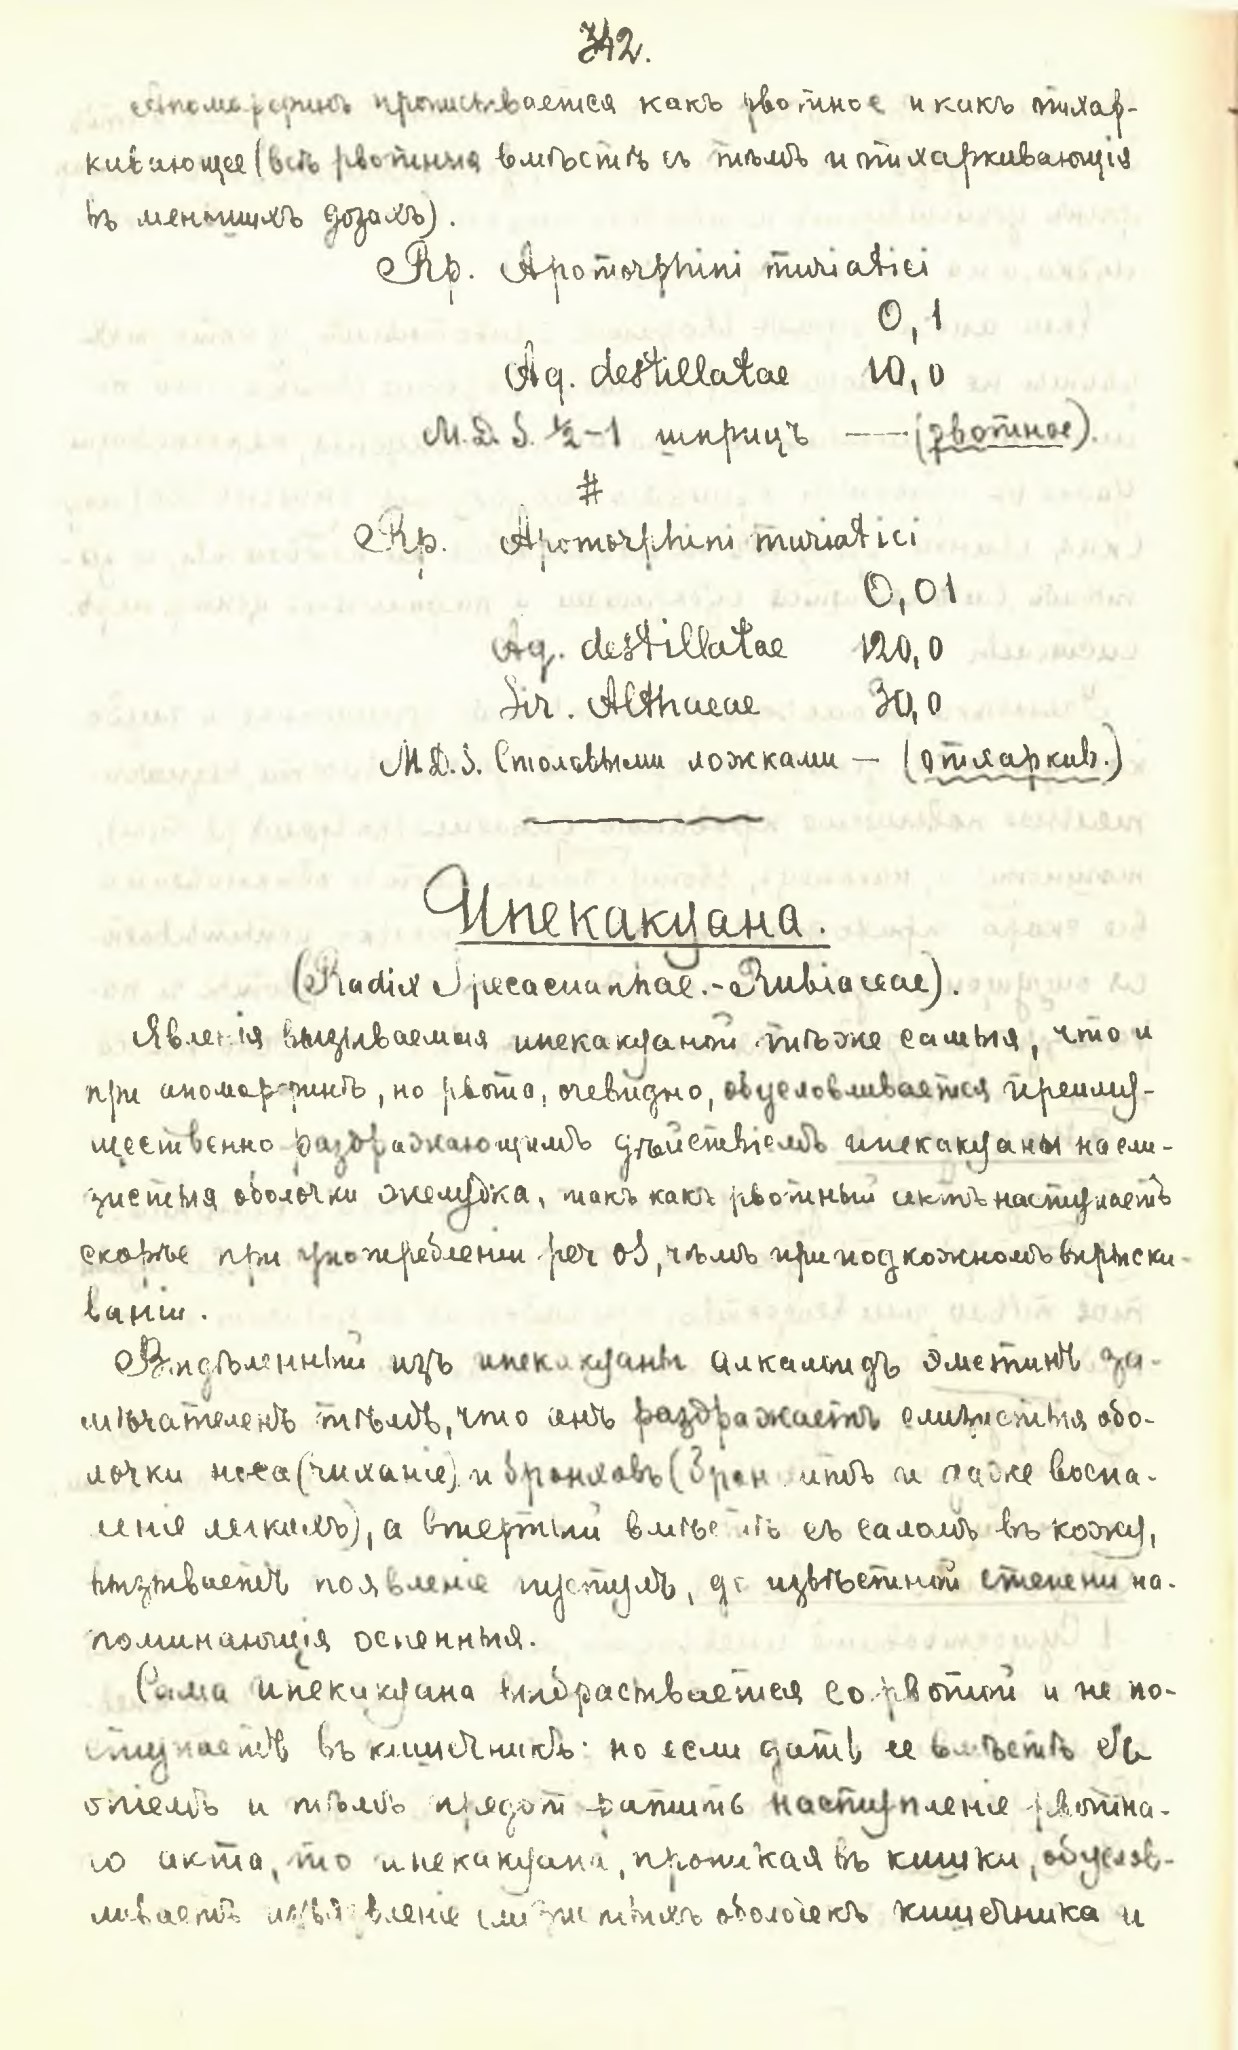 342.
Апоморфинъ прописывается какъ рвотное и какъ отхар-
кивающее (всѣ рвотныя вмѣстѣ съ тѣмъ и отхаркивающія
въ меньшихъ дозахъ).
Rp. Apomorphini muriatici
0,1
Aq. destillatae 10,0
M.D.S. ½-1 шприцъ — (рвотное).
#
Rp. Apomorphini muriatici
0,01
Aq. destillatae 120,0
Sir. Althaeae 30,0
M.D.S. Столовыми ложками — (отхаркив.)
Ипекакуана.
(Radix Ipecacuanhae. - Rubiaceae).
Явленія вызываемыя ипекакуаной тѣ же самыя, что и
при апоморфинѣ, но рвота, очевидно, обусловливается преиму-
щественно раздражающимъ дѣйствіемъ ипекакуаны на сли-
зистыя оболочки желудка, такъ какъ рвотный актъ наступаетъ
скорѣе при употребленіи per os, чѣмъ при подкожномъ впрыски-
ваніи.
Выдѣленный изъ ипекакуаны алкалоидъ эметинъ за-
мѣчателенъ тѣмъ, что онъ раздражаетъ слизистыя обо-
лочки носа (чиханіе) и бронховъ (бронхитъ и даже воспа-
леніе легкихъ), а втертый вмѣстѣ съ саломъ въ кожу,
вызываетъ появленіе пустулъ, до извѣстной степени на-
поминающія оспенныя.
Сама ипекакуана выбрасывается со рвотой и не по-
ступаетъ въ кишечникъ: но если дать ее вмѣстѣ съ
опіемъ и тѣмъ предотвратить наступленіе рвотна-
го акта, то ипекакуана, проникая въ кишки, обуслов-
ливаетъ изъязвленіе слизистыхъ оболочекъ кишечника и